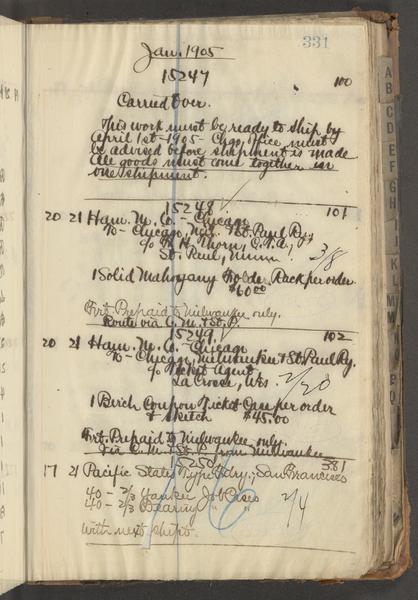 331
Jan. 1905
15247
100
Carried Over.
This work must be ready to ship by
April 1st-1905- Chgo. Office must
be advised before shipment is made
All goods must come together in
one shipment.
15248
101
20 21 Ham. M. Co. - Chicago
To - Chicago, Mil. & St. Paul Ry.
c/o H. Thorn, C.T.A.,
St. Paul, Minn.
3/8
1 Solid Mahogany Folder Rack per order
$60.00
Frt. Prepaid to Milwaukee only.
Route via C. M. & St. P.
15249
102
20 21 Ham. M. Co. - Chicago
To - Chicago, Milwaukee & St. Paul Ry.
c/o Ticket Agent
La Crosse, Wis.
2/20
1 Birch Coupon Ticket Case per order
& sketch $45.00
Frt. Prepaid to Milwaukee only.
Via C. M. & St. P. from Milwaukee
15250
381
17 21 Pacific States Type Fdry., San Francisco
40 - 2/3 Yankee Job Cases
2/4
40 - 2/3 Wearing " "
with next shipt.
A
B
C
D
E
F
G
H
I
J
K
L
M